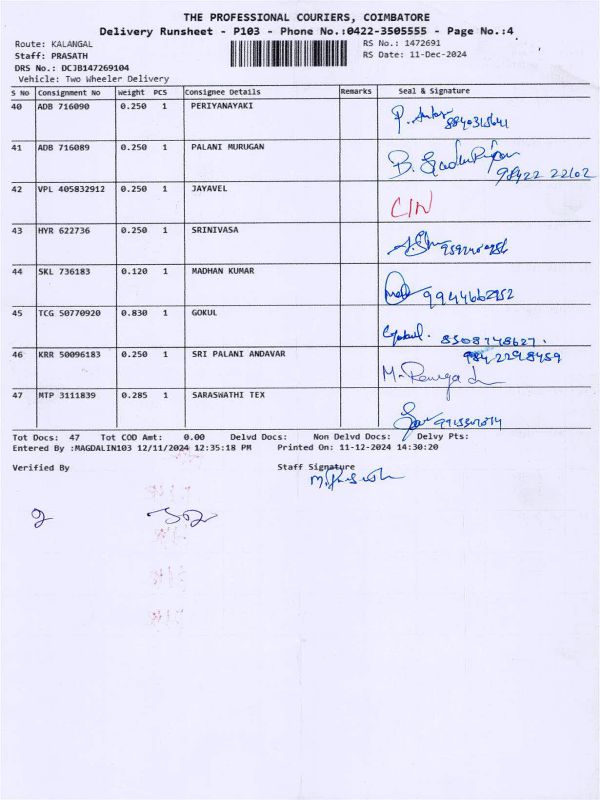 THE PROFESSIONAL COURIERS, COIMBATORE
Delivery Runsheet - P103 - Phone No.:0422-3505555 - Page No.:4
Route: KALANGAL RS No.: 1472691
Staff: PRASATH RS Date: 11-Dec-2024
DRS No.: DCJB147269104
Vehicle: Two Wheeler Delivery
S No Consignment No Weight PCS Consignee Details Remarks Seal & Signature
40 ADB 716090 0.250 1 PERIYANAYAKI
41 ADB 716089 0.250 1 PALANI MURUGAN
42 VPL 405832912 0.250 1 JAYAVEL CIN
43 HYR 622736 0.250 1 SRINIVASA
44 SKL 736183 0.120 1 MADHAN KUMAR 9944662952
45 TCG 50770920 0.830 1 GOKUL Gokul. 8508748627.
46 KRR 50096183 0.250 1 SRI PALANI ANDAVAR 9842298459
47 MTP 3111839 0.285 1 SARASWATHI TEX
Tot Docs: 47 Tot COD Amt: 0.00 Delvd Docs: Non Delvd Docs: Delvy Pts:
Entered By :MAGDALIN103 12/11/2024 12:35:18 PM Printed On: 11-12-2024 14:30:20
Verified By Staff Signature